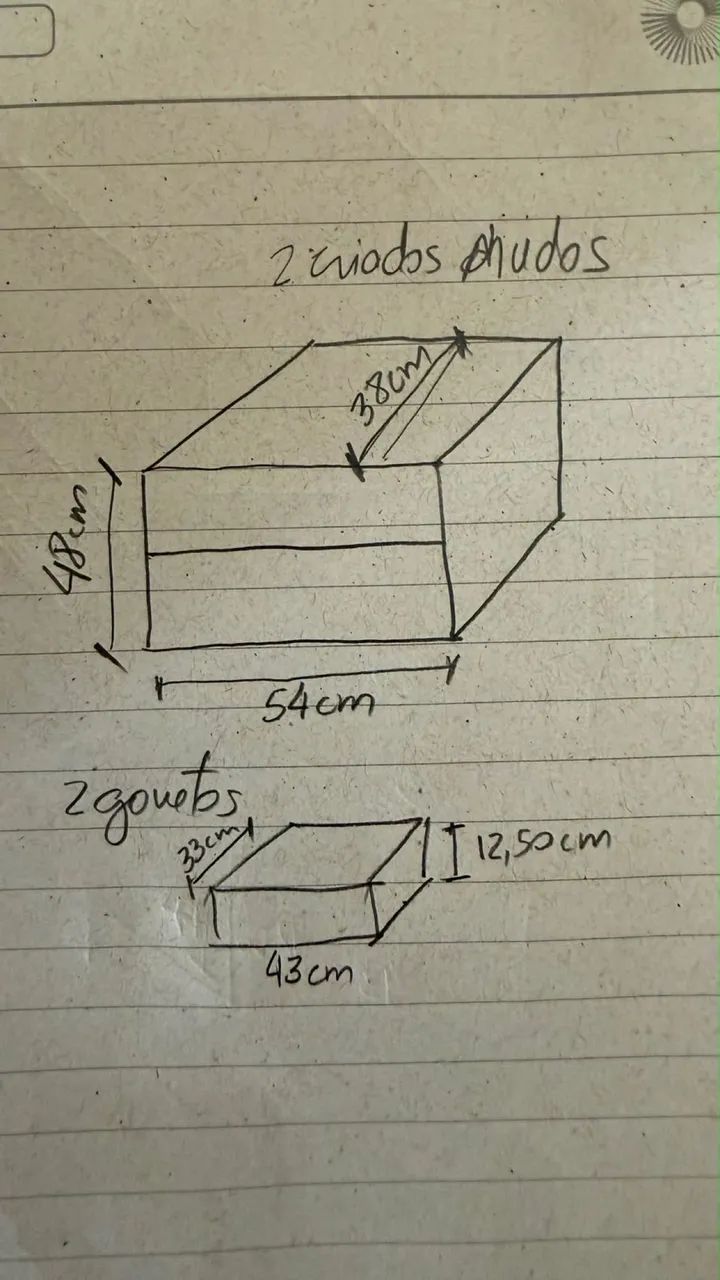 2 criados mudos
38cm
48cm
54cm
2 gavetas
33cm
12,50cm
43cm